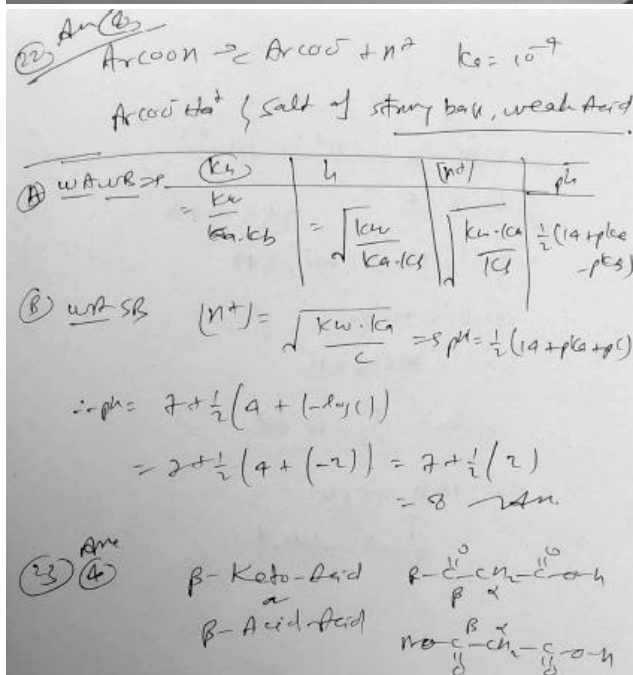 22) Ans (8)
ArCOOH ⇌ ArCOO⁻ + H⁺ Ka = 10⁻⁴
ArCOO⁻Na⁺ { Salt of strong base, weak Acid
(A) WAWB ⇒ (Kh) | h | [H⁺] | pH
= Kw / Ka.Kb | = √(Kw / Ka.Kb) | √(Kw.Ka / Kb) | ½(14 + pKa - pKb)
(B) WA SB [H⁺] = √(Kw.Ka / C) ⇒ pH = ½(14 + pKa + pC)
∴ pH = 7 + ½(4 + (-log C))
= 7 + ½(4 + (-2)) = 7 + ½(2)
= 8 Ans.
23) Ans (4)
β-Keto-Acid R-C(=O)-CH₂-C(=O)-O-H
β α
or
β-Acid-Acid HO-C(=O)-CH₂-C(=O)-O-H
β α